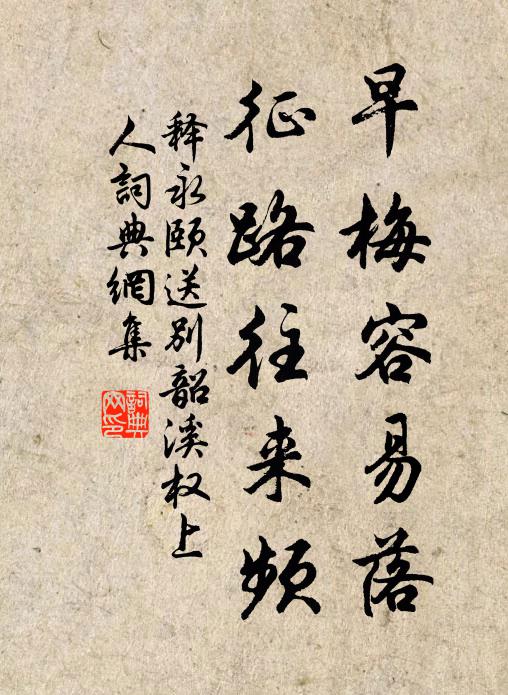 早梅容易落
征路往来頻
释永颐送别韶溪权上
人詞典網集
詞典
网印